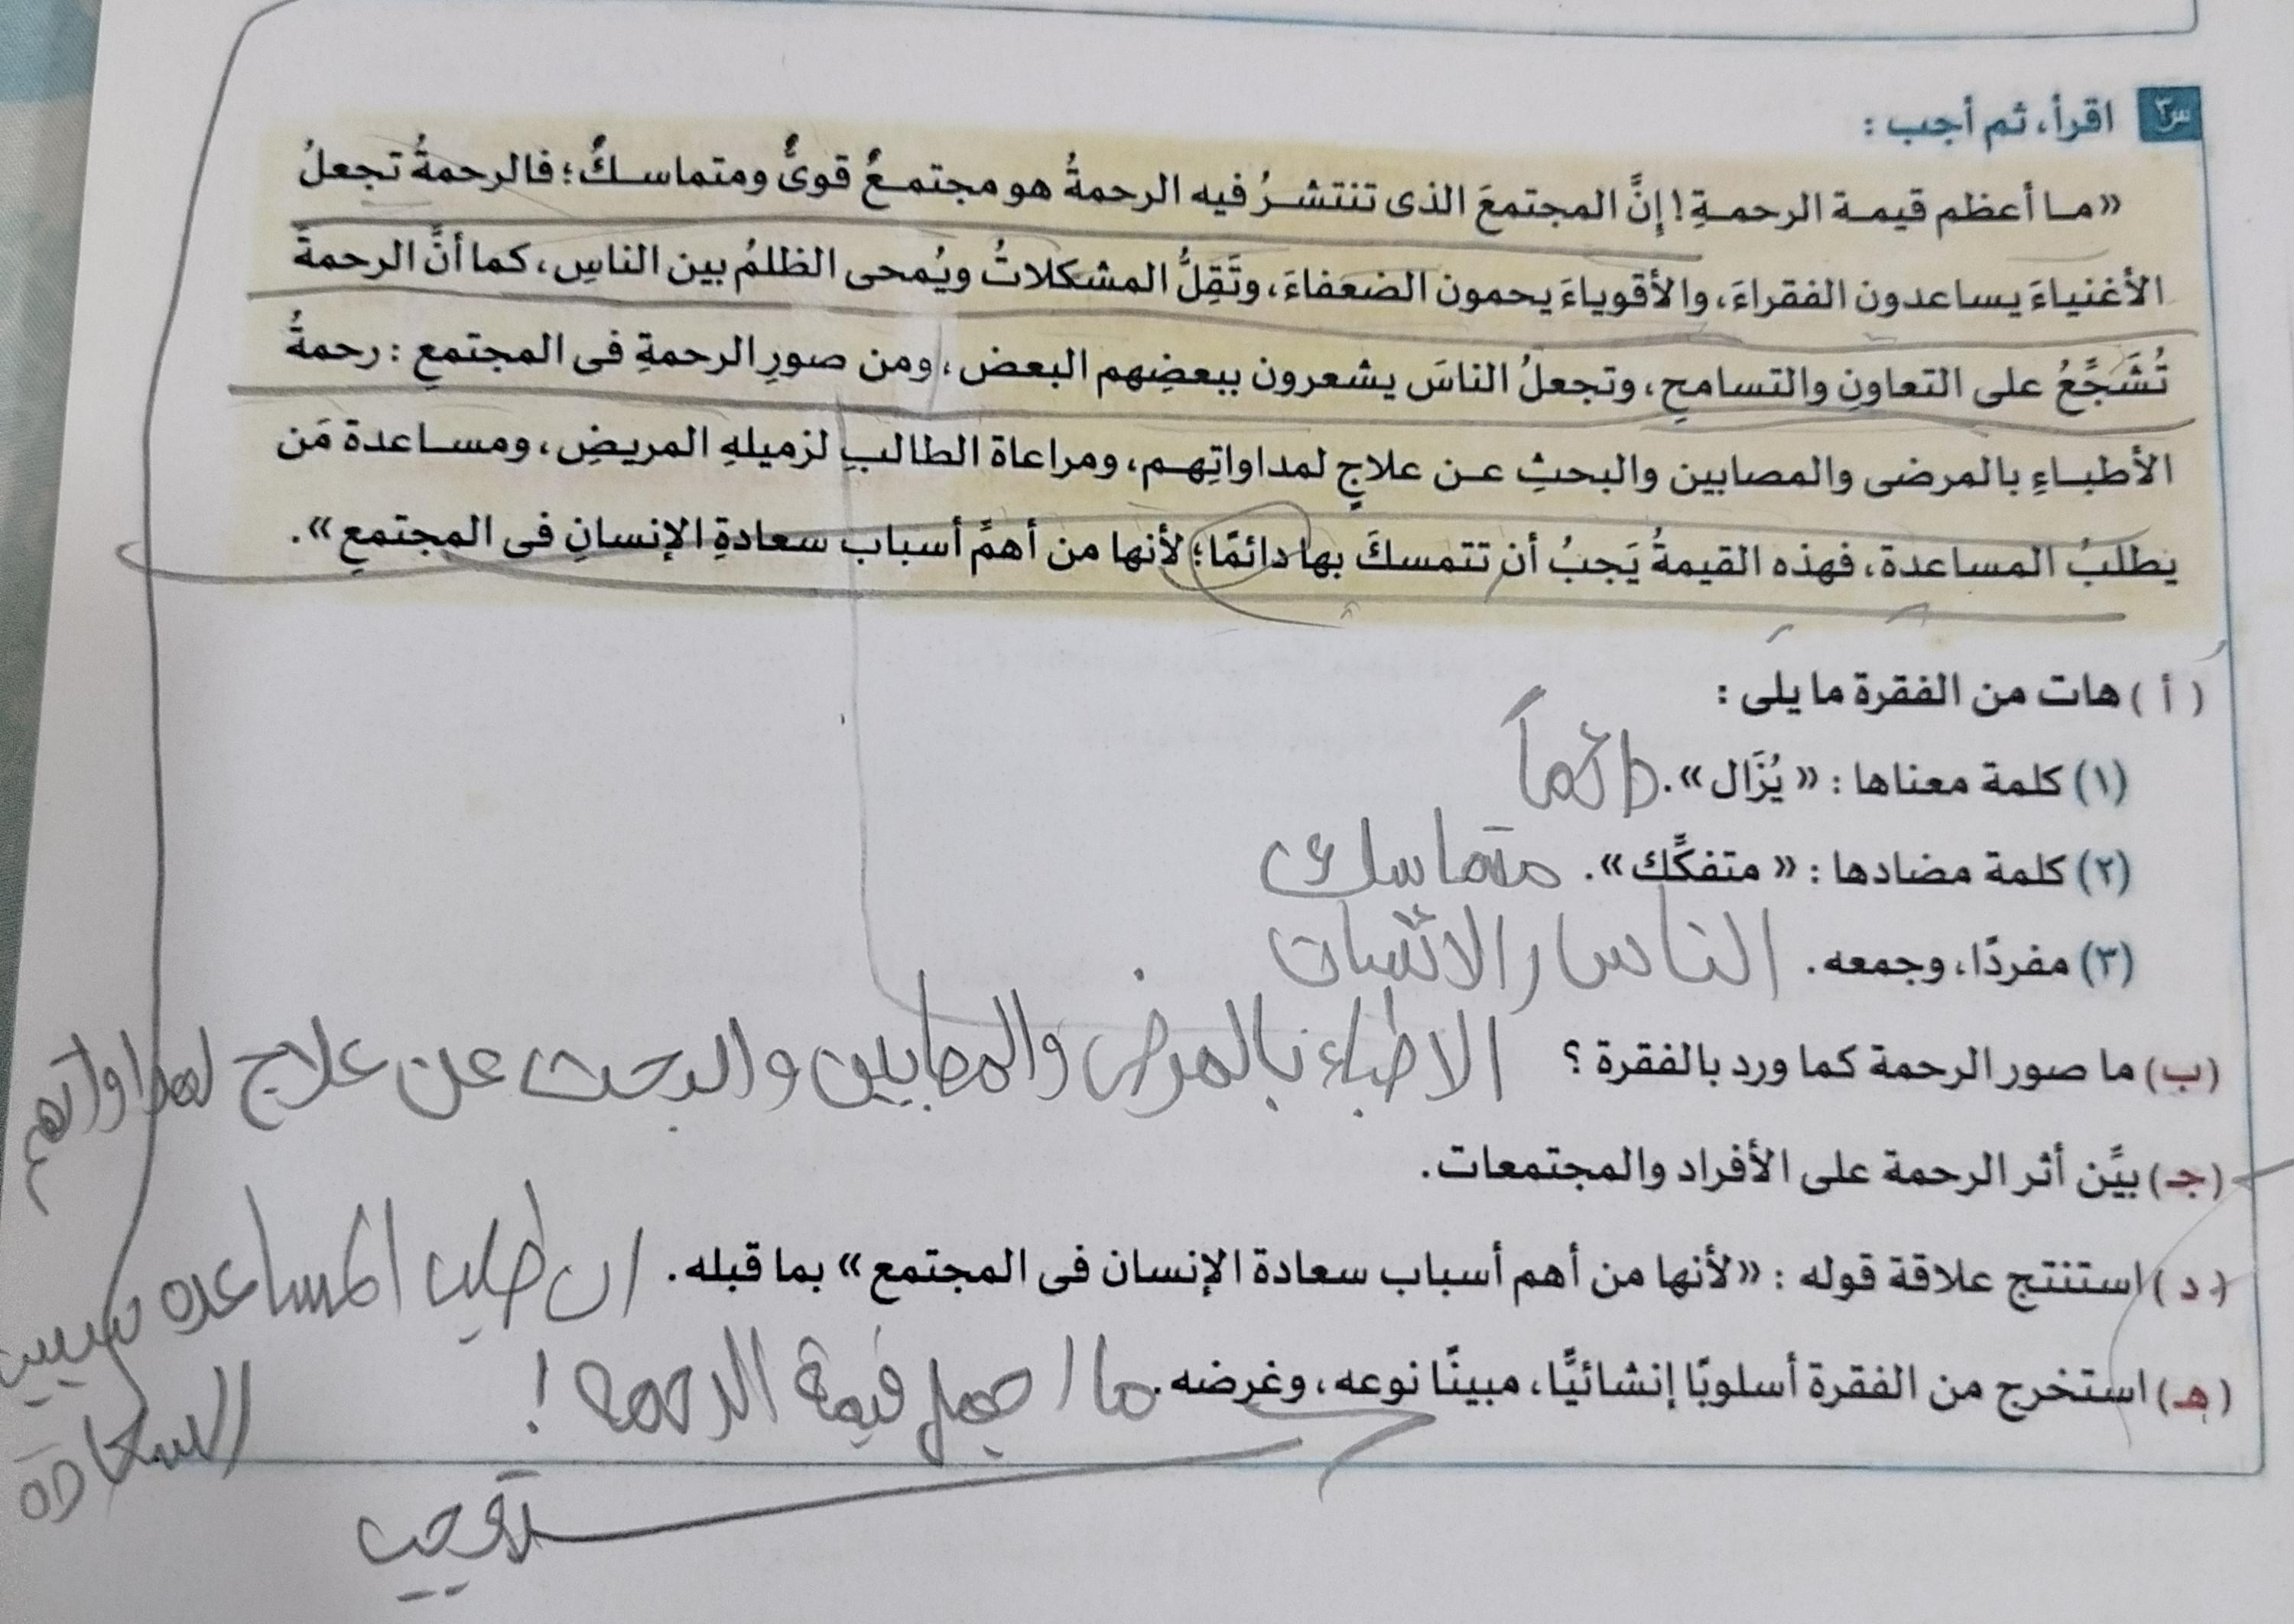 س٣ اقرأ، ثم أجب :
«ما أعظم قيمة الرحمةِ! إنَّ المجتمعَ الذى تنتشرُ فيه الرحمةُ هو مجتمعٌ قوىٌّ ومتماسكٌ؛ فالرحمةُ تجعلُ
الأغنياءَ يساعدون الفقراءَ، والأقوياءَ يحمون الضعفاءَ، وتَقِلُّ المشكلاتُ ويُمحى الظلمُ بين الناسِ، كما أنَّ الرحمةَ
تُشَجِّعُ على التعاونِ والتسامحِ، وتجعلُ الناسَ يشعرون ببعضِهم البعض، ومن صورِ الرحمةِ فى المجتمعِ : رحمةُ
الأطباءِ بالمرضى والمصابين والبحثِ عن علاجٍ لمداواتِهم، ومراعاة الطالبِ لزميلهِ المريضِ، ومساعدة مَن
يطلبُ المساعدة، فهذه القيمةُ يَجبُ أن تتمسكَ بها دائمًا؛ لأنها من أهمِّ أسباب سعادةِ الإنسانِ فى المجتمعِ».
(أ) هات من الفقرة ما يلى :
(١) كلمة معناها : «يُزَال». دائماً
(٢) كلمة مضادها : «متفكِّك». متماسك
(٣) مفردًا، وجمعه. الناس والانسان
(ب) ما صور الرحمة كما ورد بالفقرة ؟ الاطباء بالمرضى والمصابين والبحث عن علاج لمداواتهم
(جـ) بيِّن أثر الرحمة على الأفراد والمجتمعات.
(د) استنتج علاقة قوله : «لأنها من أهم أسباب سعادة الإنسان فى المجتمع» بما قبله. ان طلب المساعده
السعادة
(هـ) استخرج من الفقرة أسلوبًا إنشائيًّا، مبينًا نوعه، وغرضه. ما اجمل قيمة الرحمه !
تعجب